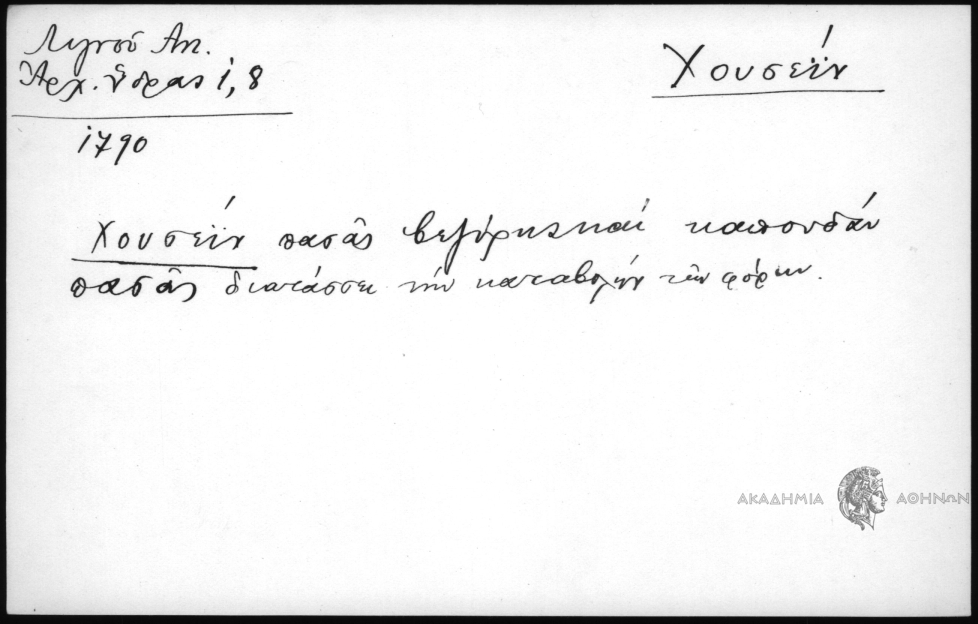 Λιγνοῦ Αντ.
Ἀρχ. Ὕδρας 1, 8
Χουσεΐν
1790
Χουσεΐν πασᾶς βεζύρης καὶ καπουδάν
πασᾶς διατάσσει τὴν καταβολὴν τῶν φόρων.
ΑΚΑΔΗΜΙΑ ΑΘΗΝΩΝ